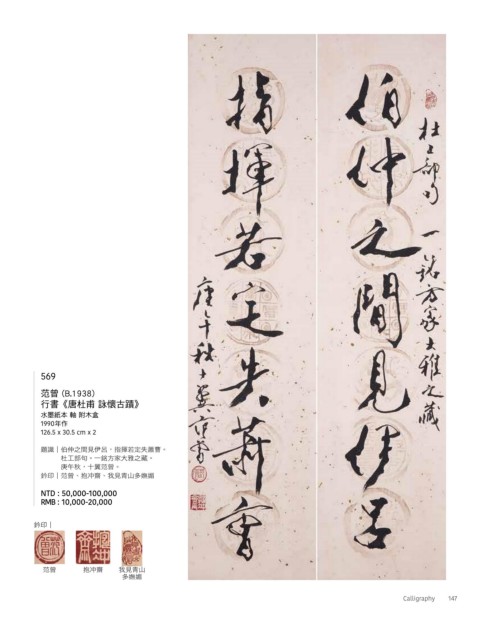 杜工部句 一銘方家大雅之藏
伯仲之間見伊呂
指揮若定失蕭曹
庚午秋 十翼范曾
569
范曾 (B.1938)
行書《唐杜甫 詠懷古蹟》
水墨紙本 軸 附木盒
1990年作
126.5 x 30.5 cm x 2
題識｜伯仲之間見伊呂，指揮若定失蕭曹。
杜工部句。一銘方家大雅之藏。
庚午秋，十翼范曾。
鈐印｜范曾、抱冲齋、我見青山多嫵媚
NTD : 50,000-100,000
RMB : 10,000-20,000
鈐印｜
范曾
抱冲齋
我見青山
多嫵媚
Calligraphy 147